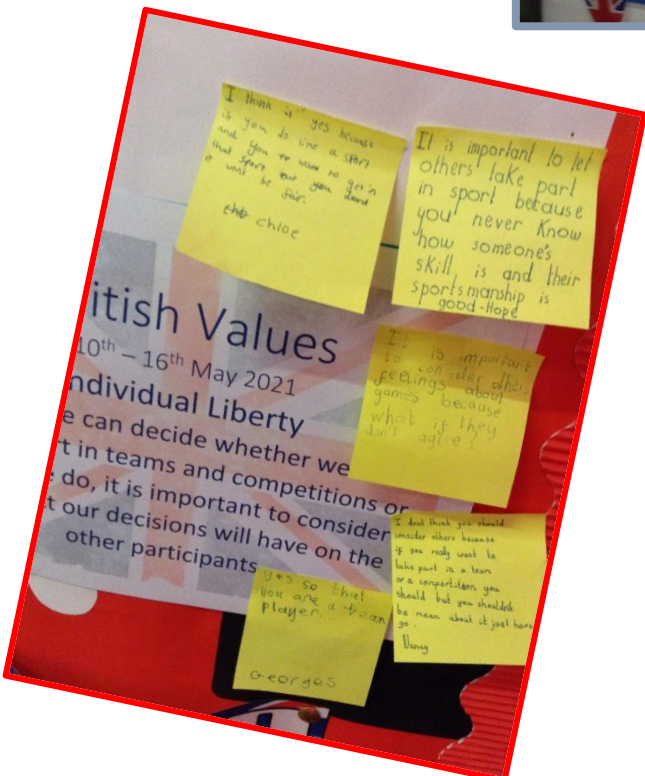 I think it yes because
is you to like a sport
and you want to get in
that sport but you dont
it wont be fair.
chloe
It is important to let
others take part
in sport because
you never know
how someone's
skill is and their
sportsmanship is
good-Hope
itish Values
10th – 16th May 2021
ndividual Liberty
e can decide whether we
t in teams and competitions or
do, it is important to consider
t our decisions will have on the
other participants
It is important
to consider others
feelings about
games because
what is they
don't agree?
I dont think you should
consider others because
if you really want to
take part in a team
or a compertition you
should but you shouldnt
be mean about it just have
go.
Nancy
yes so that
you are a team
player.
Georges